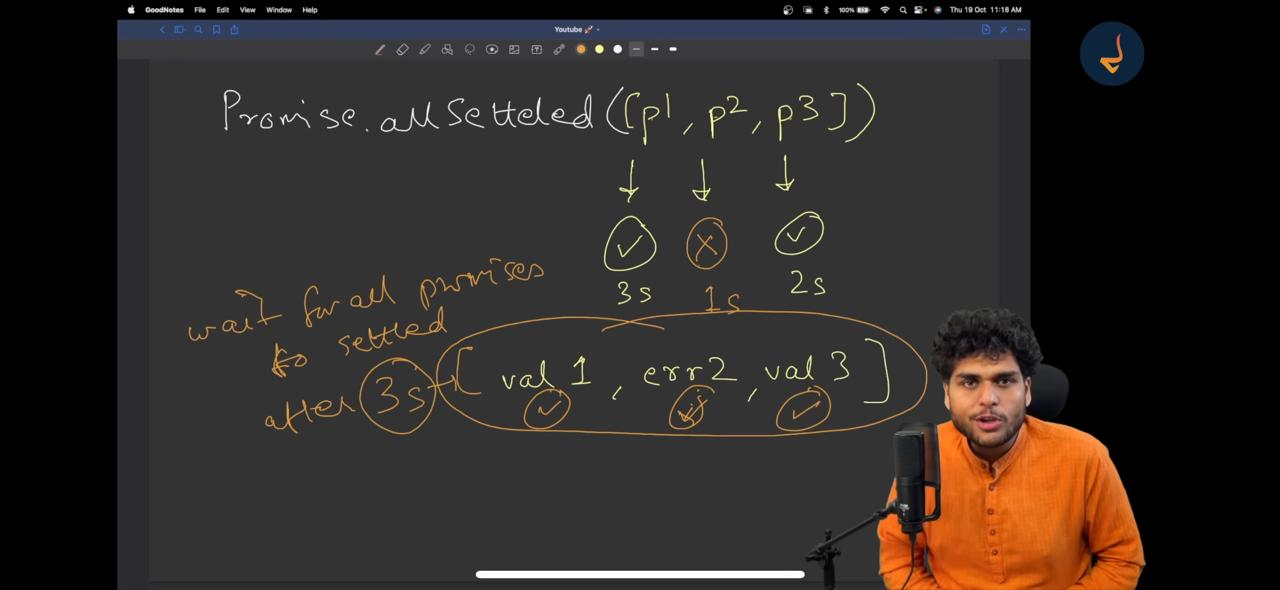 GoodNotes File Edit View Window Help 100% Thu 19 Oct 11:18 AM
Youtube 🚀
Promise.allSetteled([p1, p2, p3])
3s 1s 2s
wait for all promises
to settled
after 3s → [val 1, err2, val 3]